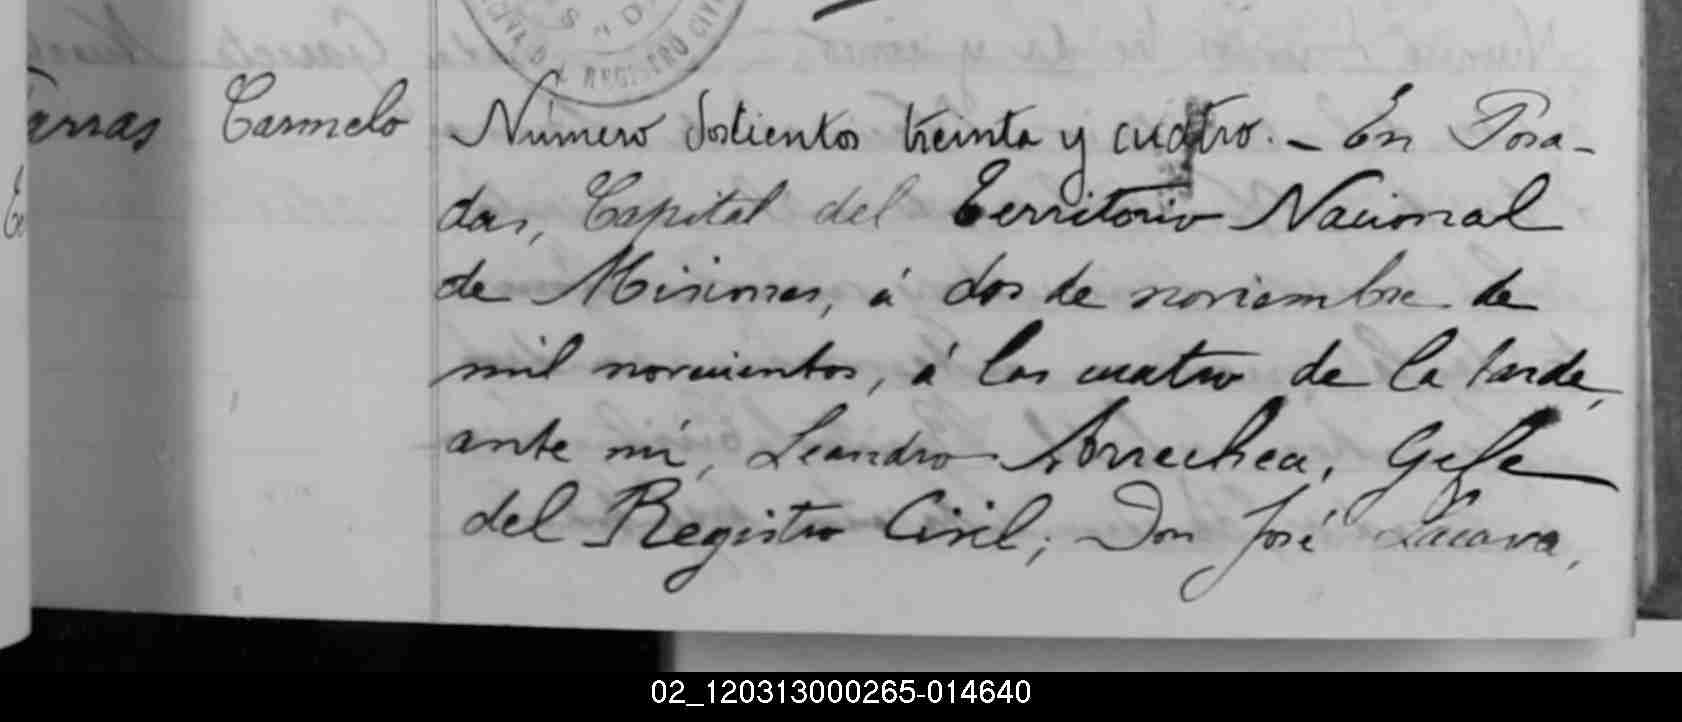 Carmelo
Número doscientos treinta y cuatro. - En Posa-
das, Capital del Territorio Nacional
de Misiones, á dos de noviembre de
mil novecientos, á las cuatro de la tarde,
ante mí, Leandro Arrechea, Gefe
del Registro Civil; Don José Lacava,
02_120313000265-014640